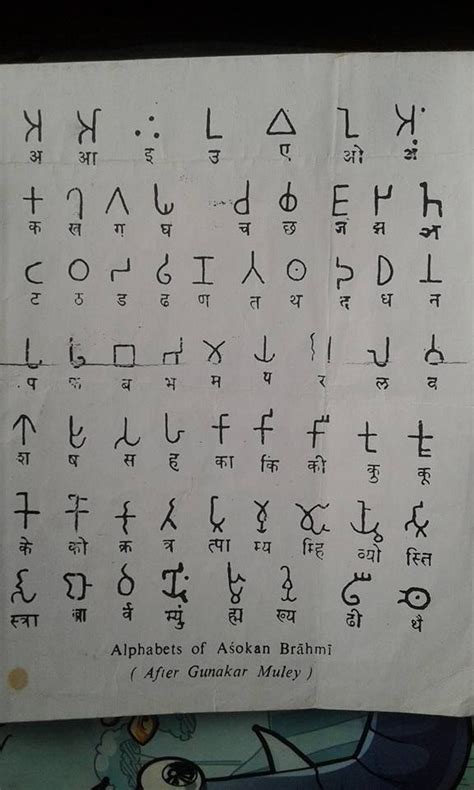 𑀅 𑀆 𑀇 𑀉 𑀏 𑀑 𑀅𑀁
अ आ इ उ ए ओ अं
𑀓 𑀔 𑀕 𑀖 𑀘 𑀙 𑀚 𑀛 𑀜
क ख ग घ च छ ज झ ञ
𑀝 𑀞 𑀟 𑀠 𑀡 𑀢 𑀣 𑀤 𑀥 𑀦
ट ठ ड ढ ण त थ द ध न
𑀧 𑀨 𑀩 𑀪 𑀫 𑀬 𑀭 𑀮 𑀯
प फ ब भ म य र ल व
𑀰 𑀱 𑀲 𑀳 𑀓𑀸 𑀓𑀺 𑀓𑀻 𑀓𑀼 𑀓𑀽
श ष स ह का कि की कु कू
𑀓𑁂 𑀓𑁄 𑀓𑁆𑀭 𑀢𑁆𑀭 𑀢𑁆𑀧𑀸 𑀫𑁆𑀬 𑀫𑁆𑀳𑀺 𑀯𑁆𑀬𑁄 𑀲𑁆𑀢𑀺
के को क्र त्र त्पा म्य म्हि व्यो स्ति
𑀲𑁆𑀢𑁆𑀭𑀸 𑀩𑁆𑀭𑀸 𑀭𑁆𑀯 𑀫𑁆𑀬𑀼𑀁 𑀳𑁆𑀫 𑀔𑁆𑀬 𑀠𑀻 𑀣𑁃
स्त्रा ब्रा र्व म्युं ह्म ख्य ढी थै
Alphabets of Aśokan Brāhmī
( After Gunakar Muley )